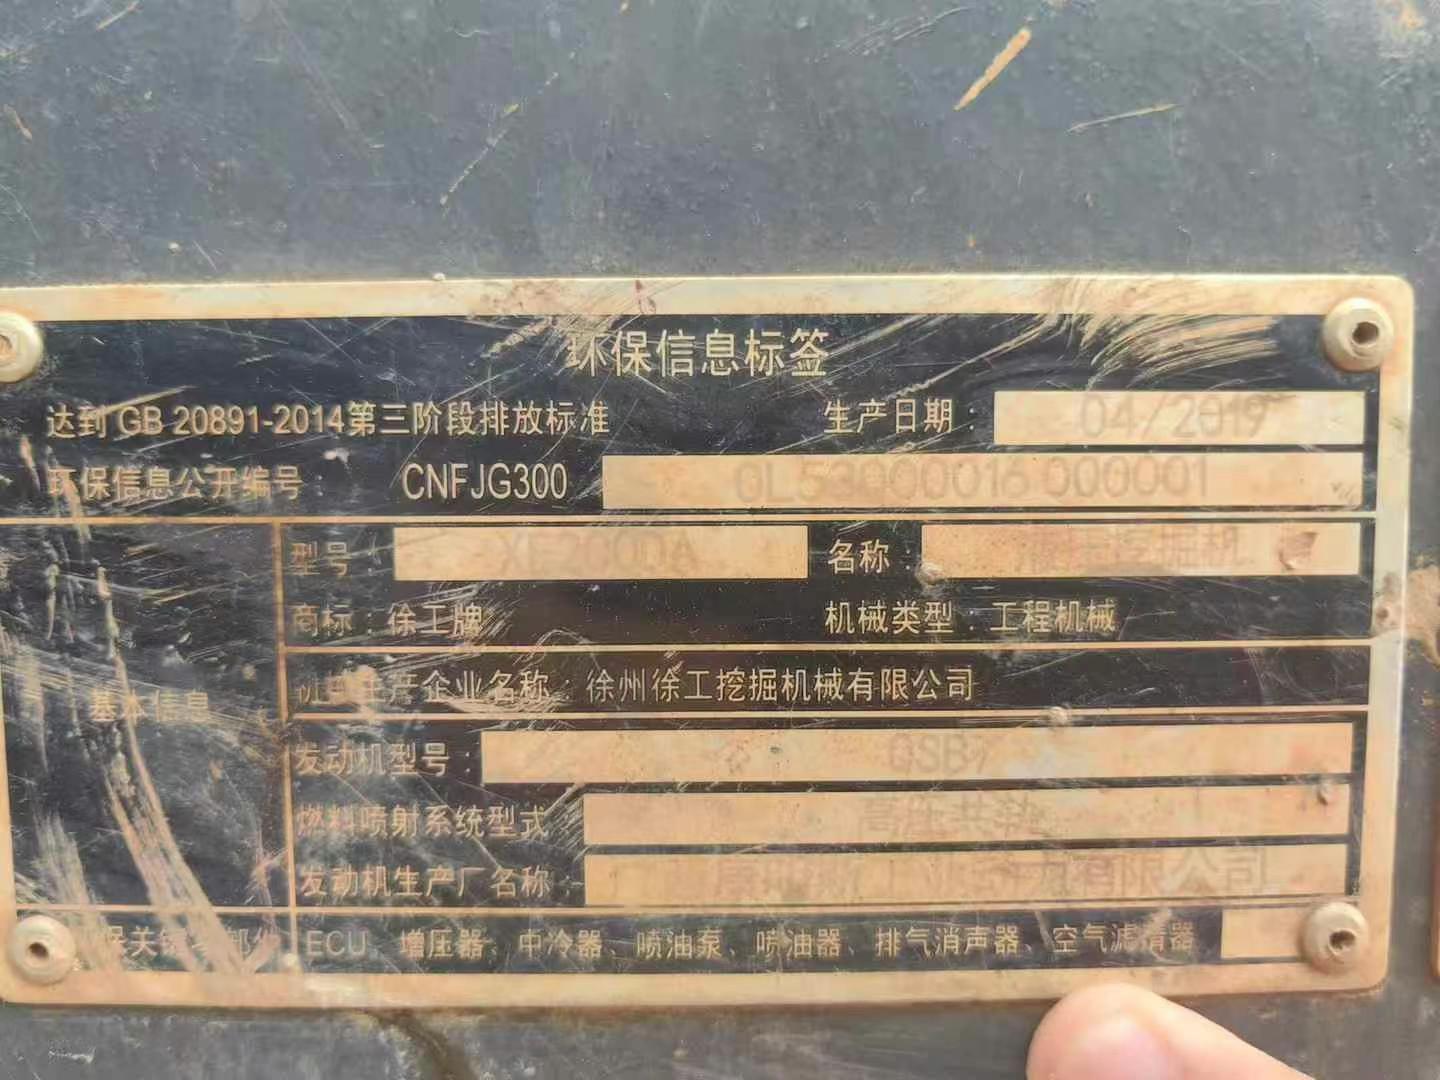 环保信息标签
达到 GB 20891-2014第三阶段排放标准 生产日期: 04/2019
环保信息公开编号: CNFJG300 0L53000016 000001
型号: XE200DA 名称:
商标: 徐工牌 机械类型: 工程机械
生产企业名称: 徐州徐工挖掘机械有限公司
基本信息
发动机型号: QSB7
燃料喷射系统型式: 高压共轨
发动机生产厂名称: 有限公司
ECU、增压器、中冷器、喷油泵、喷油器、排气消声器、空气滤清器